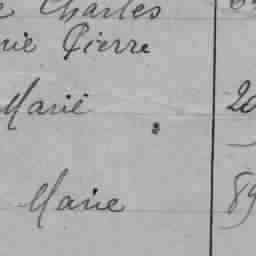 Charles
rie Pierre
Marie 20
Marie 89